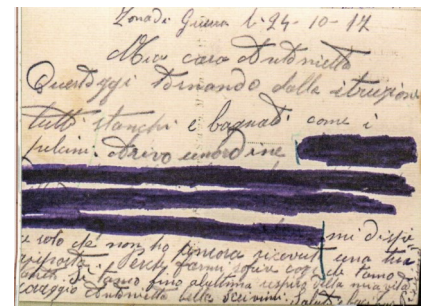 Zona di Guerra li 24-10-17
Mia cara Antonietta
Quest'oggi tornando dalla istruzione
tutti stanchi e bagnati come i
pulcini. Arivo un ordine
mi dispi
e solo che non ho ancora ricevut una tua
risposta. Perchè farmi sofrire così che t'amo
tanto. Si t'amo fino al ultimo respiro della mia vita
coraggio Antonietta bella Scrivimi. Saluti